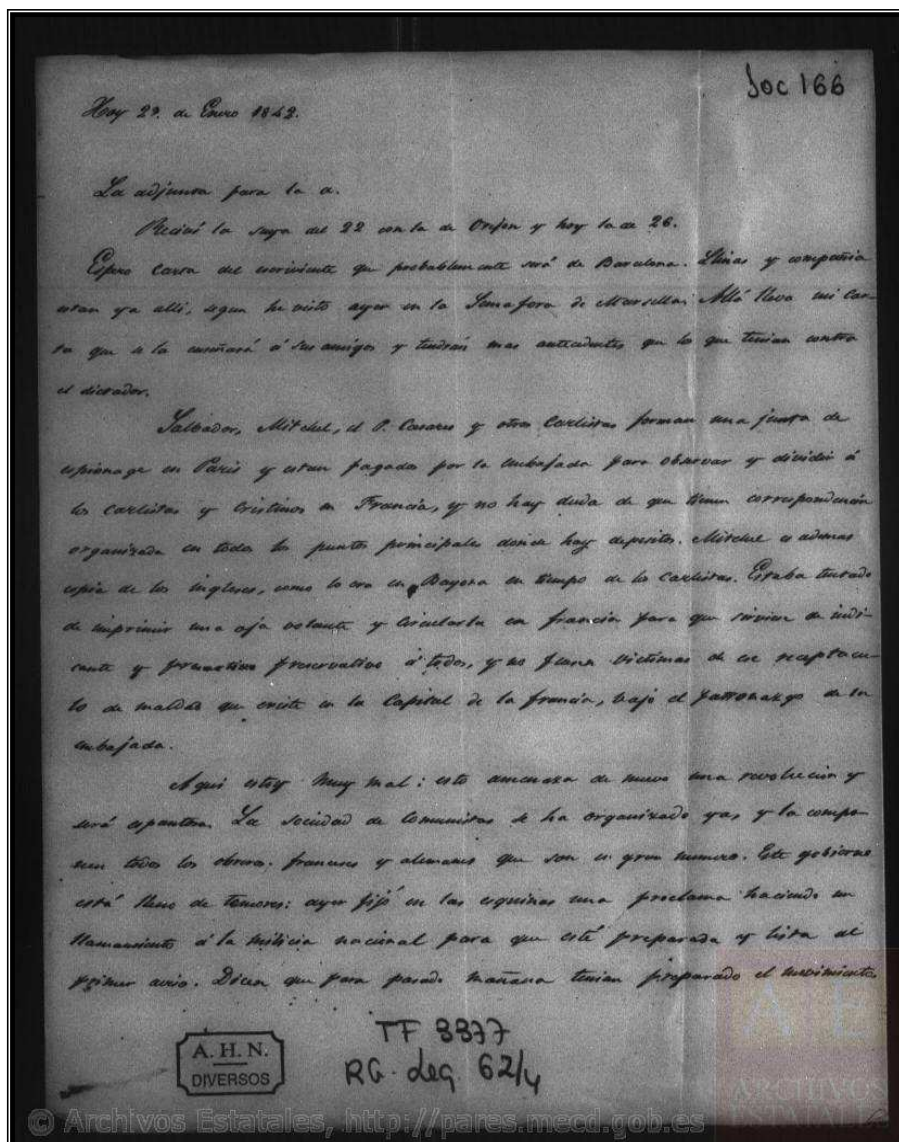 Soc 166
Hoy 29. de Enero 1842.
La adjunta para la a.
Reciví la suya del 22 con la de Orifon y hoy la de 26.
Espero carta del escriviente que probablemente será de Barcelona. Llinas y compañia
estan ya alli, segun he visto ayer en la Semafora de Marsella; Allá lleva mi car-
ta que se la enseñará á sus amigos y tendrán mas antecedentes que lo que tenian contra
el dictador.
Salbador, Mitchel, el P. Casares y otros Carlistas forman una junta de
espionage en Paris y estan pagados por la embajada para observar y dividir á
los carlistas y Cristinos en Francia, y no hay duda de que tienen correspondencia
organizada en todos los puntos principales donde hay depositos. Mitchel es ademas
espia de los ingleses, como lo era en Bayona en tiempo de los carlistas. Estaba tentado
de imprimir una oja volante y circularla en francia para que sirviese de indi-
cante y preservativo á todos, y no fuesen victimas de ese receptacu-
lo de maldad que existe en la Capital de la francia, bajo el patronazgo de la
embajada.
Aqui estoy muy mal: esto amenaza de nuevo una revolucion y
será espantosa. La sociedad de Comunistas se ha organizado ya, y la compo-
nen todos los obreros franceses y alemanes que son en gran numero. Este gobierno
está lleno de temores: ayer fijó en las esquinas una proclama haciendo un
llamamiento á la milicia nacional para que esté preparada y lista al
primer aviso. Dicen que para pasado mañana tenian preparado el movimiento
A. H. N.
DIVERSOS
TF 3377
RG. Leg 62/4
A E
ARCHIVOS
ESTATALES
© Archivos Estatales, http://pares.mecd.gob.es